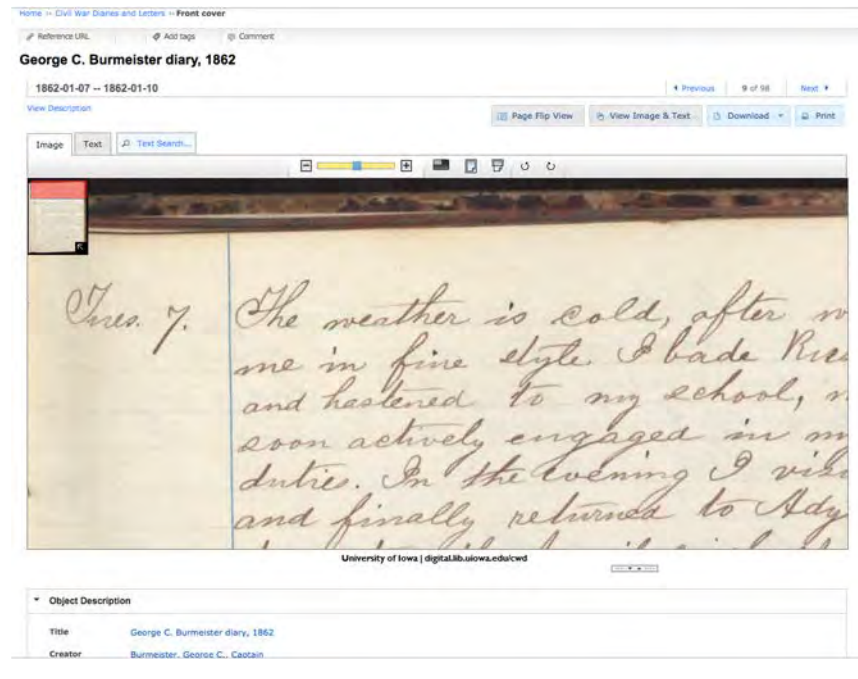 Home ›› Civil War Diaries and Letters ›› Front cover
Reference URL Add tags Comment
George C. Burmeister diary, 1862
1862-01-07 -- 1862-01-10 Previous 9 of 98 Next
View Description
Page Flip View View Image & Text Download Print
Image Text Text Search...
Tues. 7. The weather is cold, after
me in fine style I bade
and hastened to my school,
soon actively engaged in
duties. In the evening I
and finally returned to Ady
University of Iowa | digital.lib.uiowa.edu/cwd
Object Description
Title George C. Burmeister diary, 1862
Creator Burmeister, George C., Captain